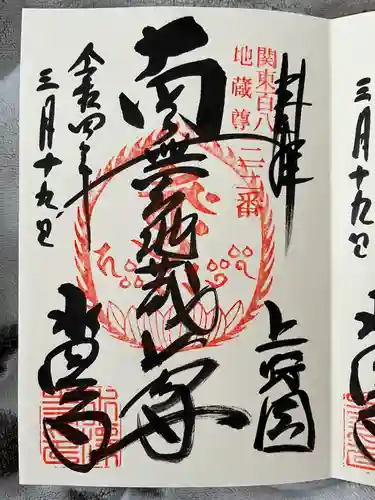 奉拝
関東百八
地蔵尊
番
南無地蔵尊
上野国
令和四年
三月十九日
水澤寺
三月十九日